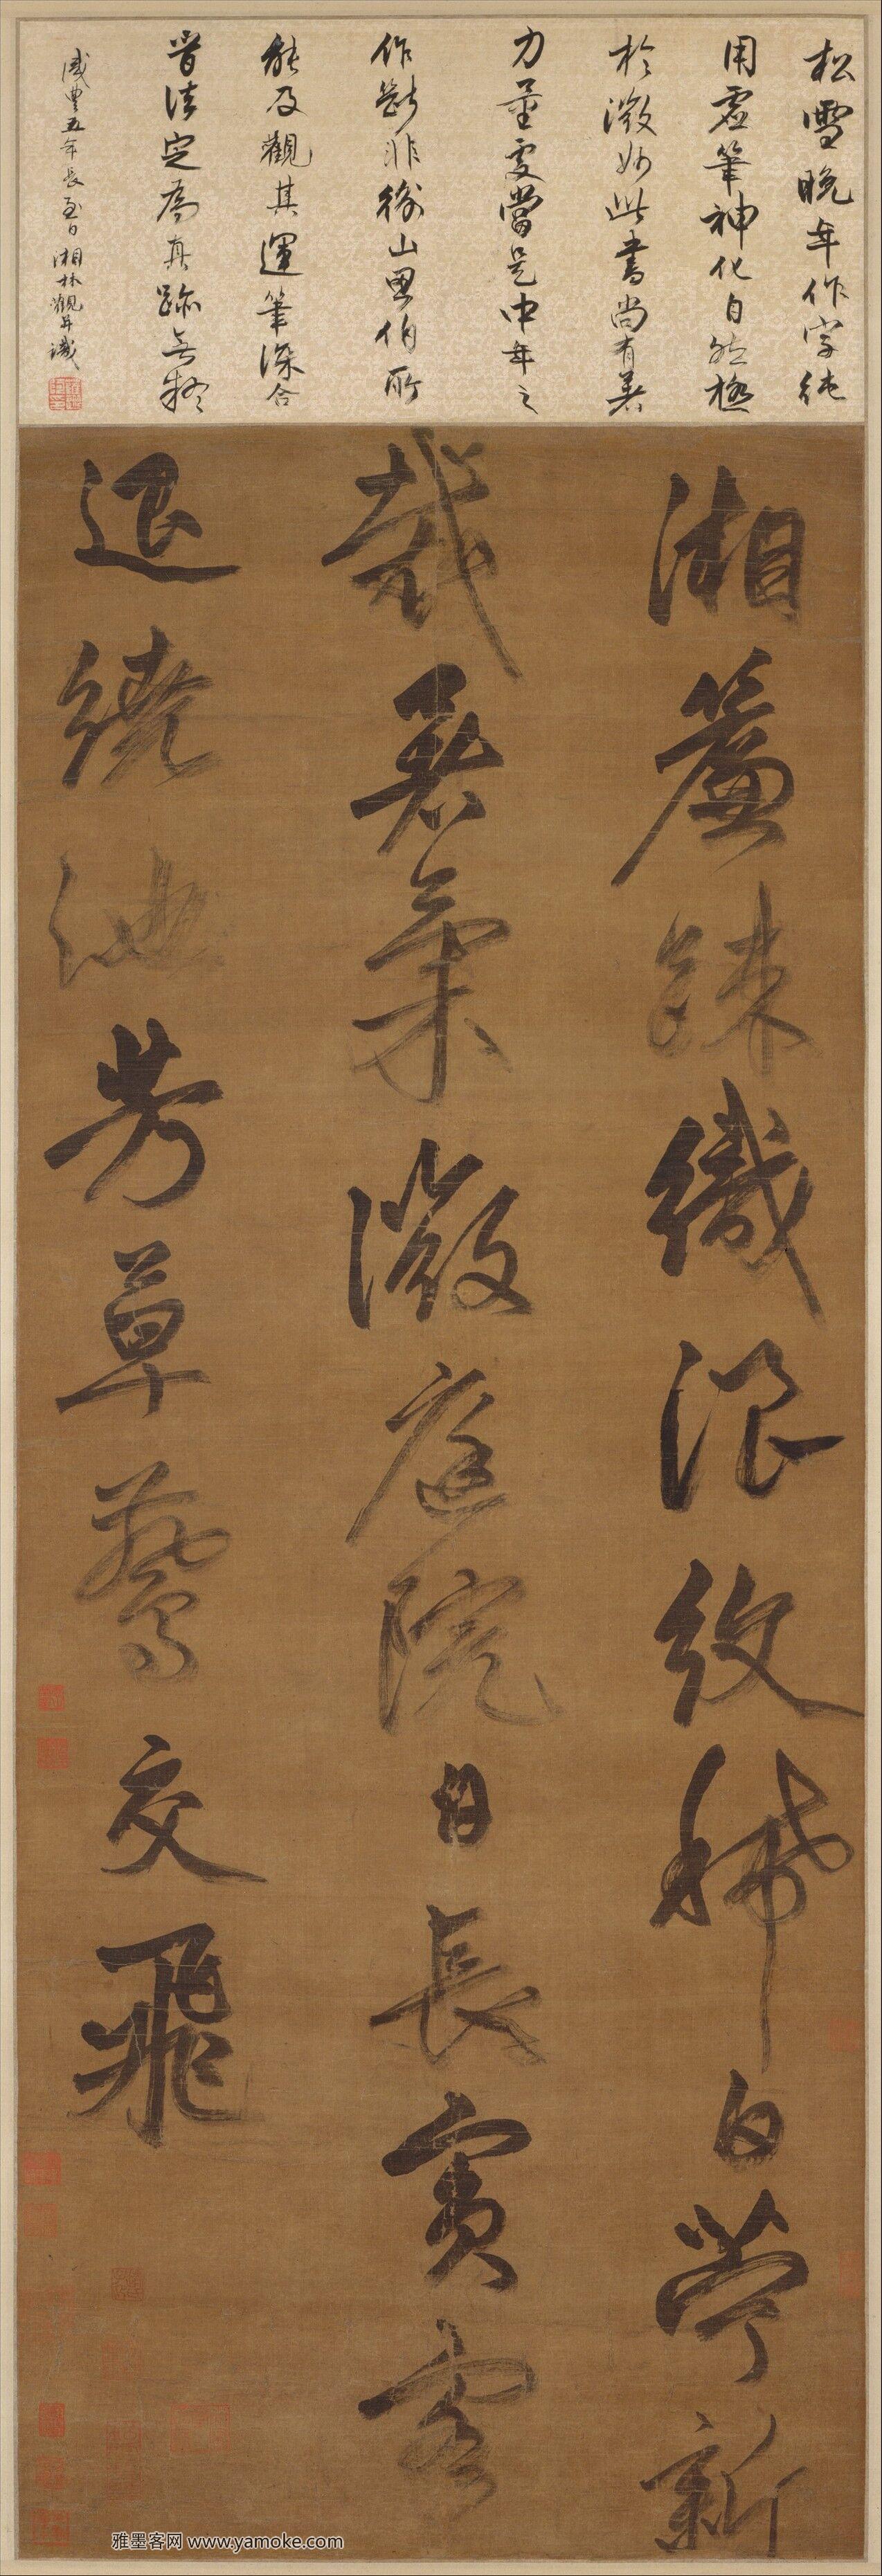 松雪晚年作字純
用虛筆神化自然極
於微妙此書尚有著
力量處當是中年之
作斷非衡山思伯所
能及觀其運筆深合
晉法定為真跡無疑
咸豐五年長至日湘林觀并識
湘簾疎織浪紋稀白苧新
裁暑氣微庭院日長賓客
退繞池芳草燕交飛
雅墨客网 www.yamoke.com